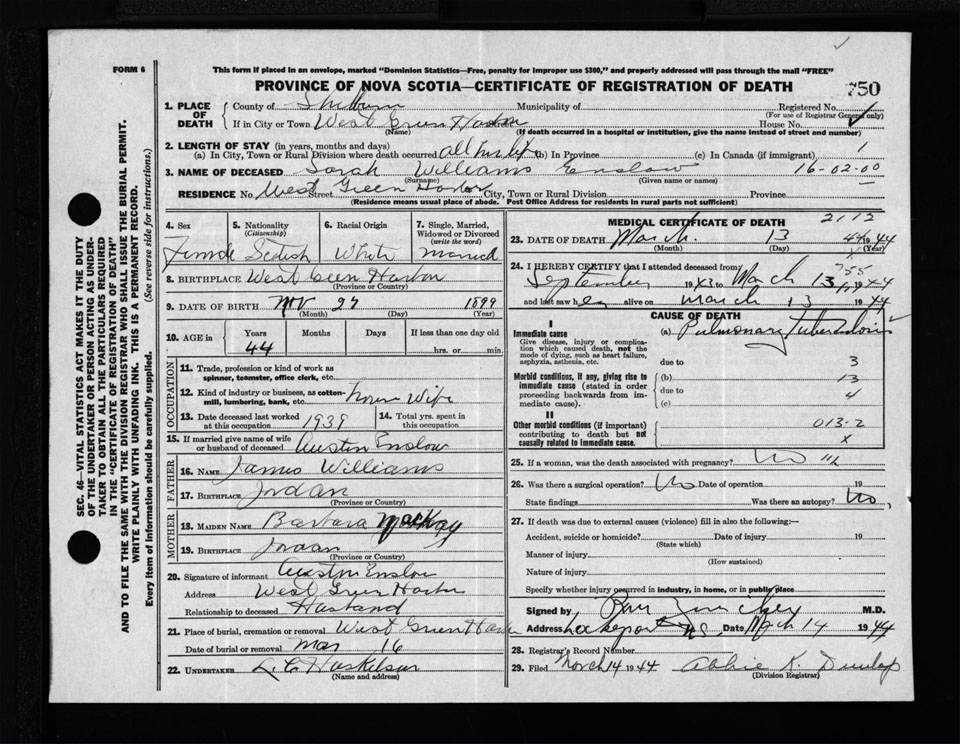 FORM 6
This form if placed in an envelope, marked "Dominion Statistics—Free, penalty for improper use $300," and properly addressed will pass through the mail "FREE"
PROVINCE OF NOVA SCOTIA—CERTIFICATE OF REGISTRATION OF DEATH
750
SEC. 46—VITAL STATISTICS ACT MAKES IT THE DUTY
OF THE UNDERTAKER OR PERSON ACTING AS UNDER-
TAKER TO OBTAIN ALL THE PARTICULARS REQUIRED
IN THE "CERTIFICATE OF REGISTRATION OF DEATH"
AND TO FILE THE SAME WITH THE DIVISION REGISTRAR WHO SHALL ISSUE THE BURIAL PERMIT.
WRITE PLAINLY WITH UNFADING INK. THIS IS A PERMANENT RECORD.
Every item of information should be carefully supplied. (See reverse side for instructions.)
1. PLACE OF DEATH
County of Shelburne Municipality of Registered No.
(For use of Registrar General only)
If in City or Town West Green Harbor House No.
(Name) (If death occurred in a hospital or institution, give the name instead of street and number)
2. LENGTH OF STAY (in years, months and days)
(a) In City, Town or Rural Division where death occurred all her life (b) In Province (c) In Canada (if immigrant) 1
3. NAME OF DECEASED Sarah Williams Enslow 16-02-00
(Surname) (Given name or names)
RESIDENCE No. West Green Harbor Street City, Town or Rural Division Province
(Residence means usual place of abode. Post Office Address for residents in rural parts not sufficient)
4. Sex 5. Nationality (Citizenship) 6. Racial Origin 7. Single, Married, Widowed or Divorced (write the word)
White Married
8. BIRTHPLACE West Green Harbor
(Province or Country)
9. DATE OF BIRTH 27 1899
(Month) (Day) (Year)
10. AGE in Years Months Days If less than one day old
44 hrs. or min.
OCCUPATION
11. Trade, profession or kind of work as spinner, teamster, office clerk, etc.
12. Kind of industry or business, as cotton-mill, lumbering, bank, etc. House Wife
13. Date deceased last worked at this occupation 1939 14. Total yrs. spent in this occupation
15. If married give name of wife or husband of deceased Austin Enslow
FATHER
16. NAME James Williams
17. BIRTHPLACE Jordan
(Province or Country)
MOTHER
18. MAIDEN NAME Barbara MacKay
19. BIRTHPLACE Jordan
(Province or Country)
20. Signature of informant Austin Enslow
Address West Green Harbor
Relationship to deceased Husband
21. Place of burial, cremation or removal West Green Harbor
Date of burial or removal Mar 16
22. UNDERTAKER
(Name and address)
MEDICAL CERTIFICATE OF DEATH 2112
23. DATE OF DEATH March 13 1944
(Month) (Day) (Year)
24. I HEREBY CERTIFY that I attended deceased from 755
September 1943 to March 13 1944
and last saw her alive on March 13 1944
CAUSE OF DEATH
I
Immediate cause (a) Pulmonary Tuberculosis
Give disease, injury or complication which caused death, not the mode of dying, such as heart failure, asphyxia, asthenia, etc.
due to 3
Morbid conditions, if any, giving rise to immediate cause (stated in order proceeding backwards from immediate cause).
(b) 13
due to 4
(c)
II
Other morbid conditions (if important) contributing to death but not causally related to immediate cause.
013-2
x
25. If a woman, was the death associated with pregnancy? No
26. Was there a surgical operation? No Date of operation 19
State findings Was there an autopsy? No
27. If death was due to external causes (violence) fill in also the following:—
Accident, suicide or homicide? Date of injury 19
(State which)
Manner of injury
(How sustained)
Nature of injury
Specify whether injury occurred in industry, in home, or in public place
Signed by M.D.
Address Lockeport NS Date March 14 1944
28. Registrar's Record Number
29. Filed March 14 1944 Abbie K. Dunlop
(Division Registrar)